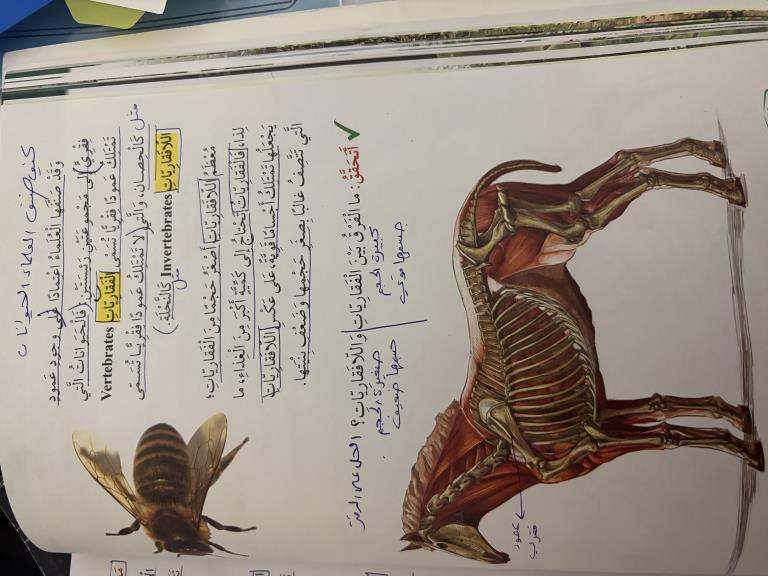 كيف صنف العلماء الحيوانات
وَقَدْ صَنَّفَها الْعُلَماءُ اعْتِمادًا عَلى وُجودِ عَمودٍ
فِقْرِيٍّ إِلى مَجْموعَتَيْنِ رَئيسَتَيْنِ؛ فَالْحَيَواناتُ الَّتي
تَمْتَلِكُ عَمودًا فِقْرِيًّا تُسَمّى الْفَقارِيّاتِ Vertebrates
مثل كَالْحِصانِ، وَالَّتي لا تَمْتَلِكُ عَمودًا فِقْرِيًّا تُسَمّى
اللّافَقارِيّاتِ Invertebrates كَالنَّحْلَةِ.
مثل
مُعْظَمُ اللّافَقارِيّاتِ أَصْغَرُ حَجْمًا مِنَ الْفَقارِيّاتِ؛
لِذا، فَالْفَقارِيّاتُ تَحْتاجُ إِلى كَمِّيَّةٍ أَكْبَرَ مِنَ الْغِذاءِ، ما
يَجْعَلُها تَمْتَلِكُ أَجْسامًا قَوِيَّةً، عَلى عَكْسِ اللّافَقارِيّاتِ
الَّتي تَتَّصِفُ غالِبًا بِصِغَرِ حَجْمِها وَضَعْفِ بُنْيَتِها.
✓ أَتَحَقَّقُ: ما الْفَرْقُ بَيْنَ الْفَقارِيّاتِ وَاللّافَقارِيّاتِ؟ الحل على
كبيرة الحجم صغيرة الحجم
جسمها قوي جسمها ضعيف
عمود
فقري